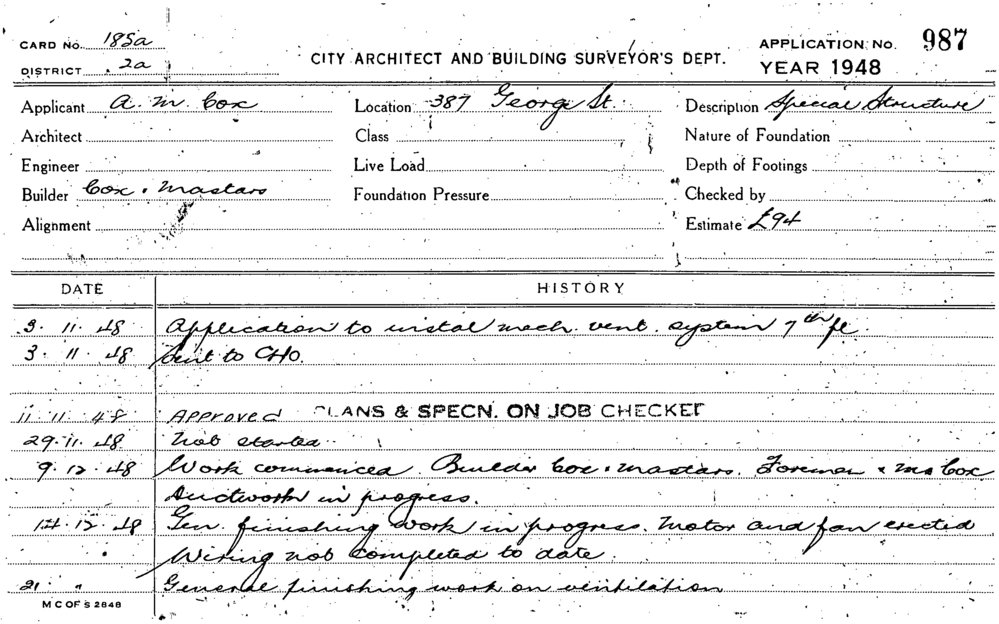 CARD No. 185a
DISTRICT 2a
CITY ARCHITECT AND BUILDING SURVEYOR'S DEPT.
APPLICATION No. 987
YEAR 1948
Applicant A. M. Cox
Location 387 George St.
Description Special Structure
Architect
Class
Nature of Foundation
Engineer
Live Load
Depth of Footings
Builder Cox & Mastars
Foundation Pressure
Checked by
Alignment
Estimate £94
DATE HISTORY
3. 11. 48 Application to instal mech. vent. system 7th fl.
3. 11. 48 Sent to CHO.
11. 11. 48 Approved PLANS & SPECN. ON JOB CHECKED
29. 11. 48 Not started
9. 12. 48 Work commenced. Builder Cox & Mastars. Foreman Cox
Ductwork in progress.
14. 12. 48 Gen. finishing work in progress. Motor and fan erected
Wiring not completed to date.
21. " General finishing work on ventilation
M C OF S 2848